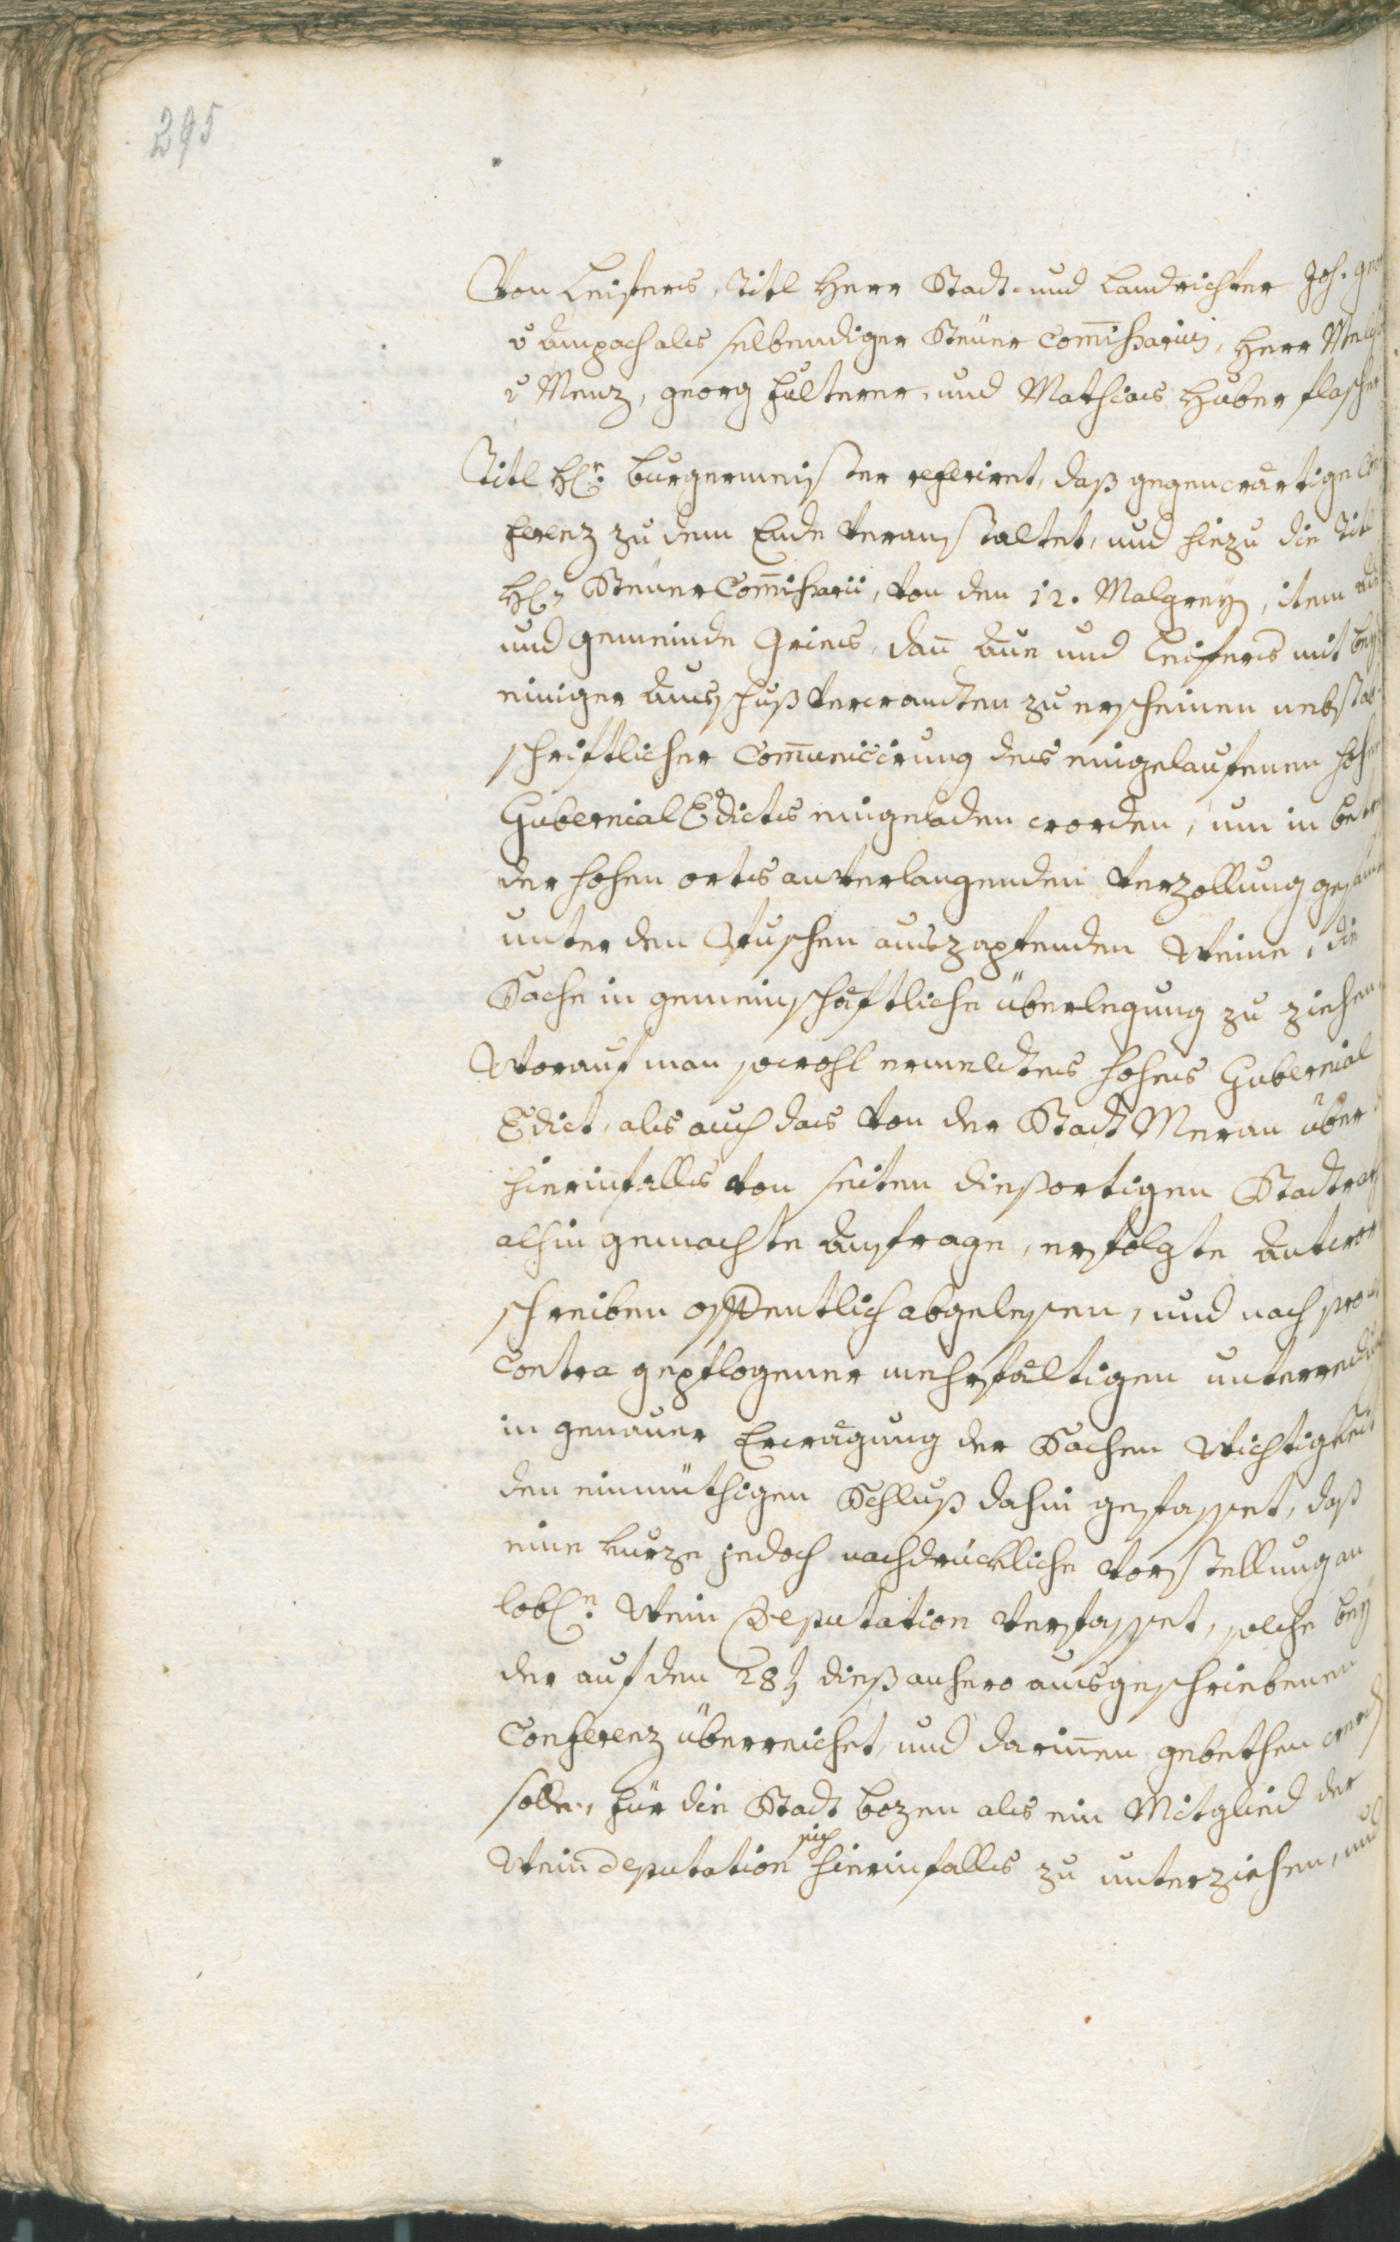 295
Von Leifers, Titl Herr Stadt- und Landrichter Joh. Geo
v Ampach als selbendiger Steüer Commissarius, Herr
v Menz, Georg Fulterer, und Mathias Huber
Titl H(er)r Burgermeister referiret, daß gegenwärtige Con
ferenz zu dem Ende veranstaltet, und hiezu die Titl
H(er)n Steüer Commissarii, von den 12. Malgreÿ, item
und Gemeinde Gries, dan Aue und Leifers mit
einiger Ausschuß verwandten zu erscheinen nebst ab
schriftlicher Communicirung des eingelaufenen hohen
Gubernial Edicts eingeladen worden, um in betref
der hohen orts anverlangenden Verzollung gesamt
unter den Buschen auszapfenden Weine, die
Sache in gemeinschäftliche überlegung zu ziehen
Worauf man sowohl ermeldtes hohes Gubernial
Edict, als auch das von der Stadt Meran über
hierinfalls von seiten dießortigen Stadtrath
alhin gemachte Anfrage, erfolgte Antwort
schreiben offentlich abgelesen, und nach pro
Contra gepflogener mehrfältigen unterredung
in genauer Erwägung der Sachen Wichtigkeit
den einmüthigen Schluß dahin gefasset, daß
eine kurze jedoch nachdrückliche Vorstellung an
lobl(iche)n Wein Deputation verfasset, solche beÿ
der auf den 28t dieß anhero ausgeschriebenen
Conferenz überreichet, und darinen gebethen werd
solle, für die Stadt Bozen als ein Mitglied der
Wein deputation sich hierinfalls zu unterziehen, und